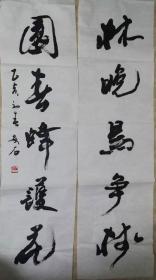 林晚鳥争樹
園春蜂護花
乙亥初春